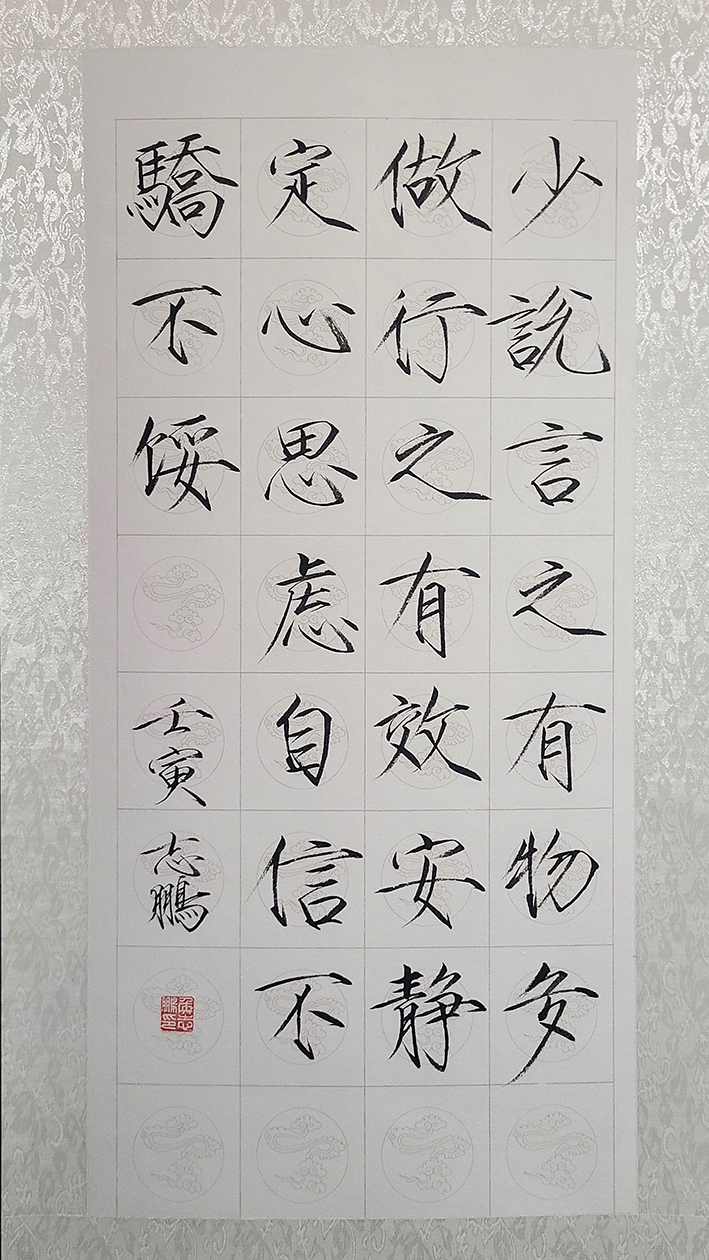 少說言之有物多
做行之有效安静
定心思虑自信不
驕不餒
壬寅
志鵬